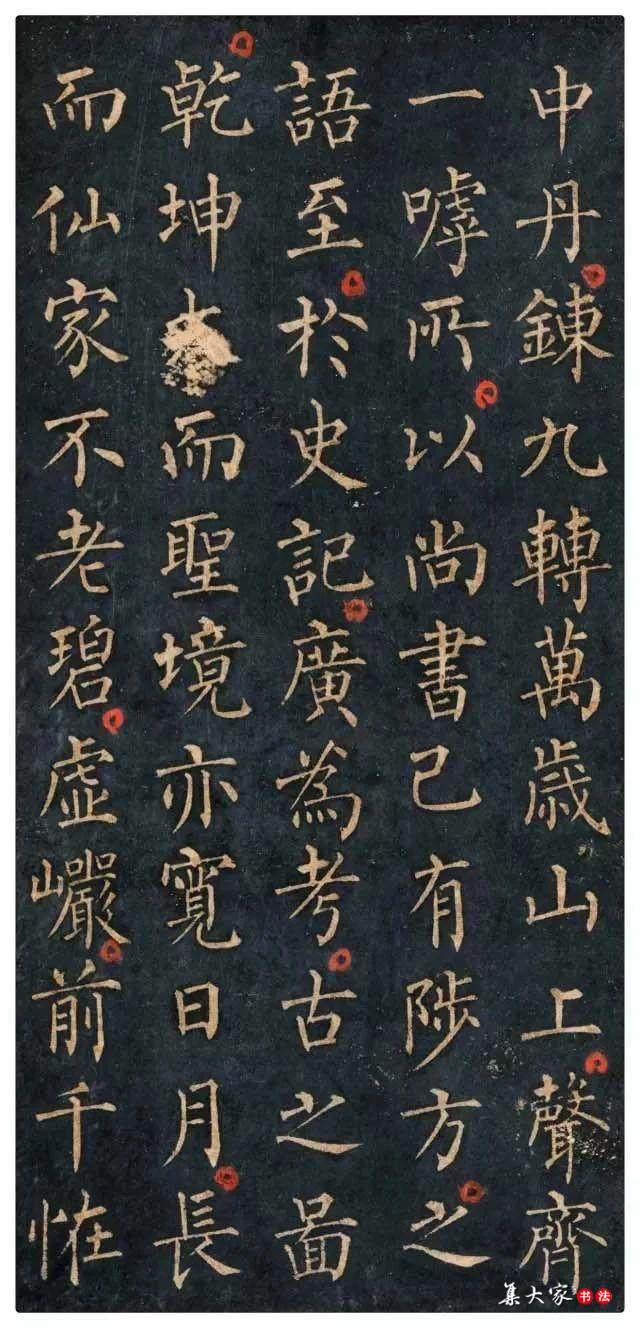 中丹鍊九轉萬歳山上聲齊
一嘑所以尚書已有陟方之
語至於史記廣為考古之圖
乾坤而聖境亦寬日月長
而仙家不老碧虛巗前千恠
集大家书法